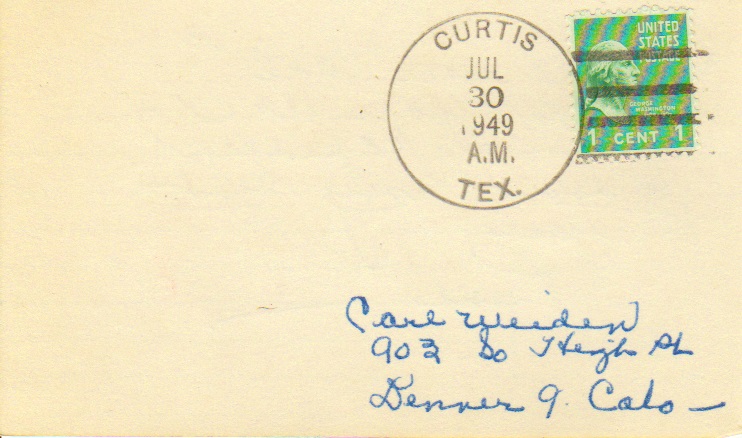 CURTIS
JUL
30
1949
A.M.
TEX.
UNITED
STATES
POSTAGE
GEORGE
WASHINGTON
1 CENT 1
Carl Weiden
903 So High St
Denver 9. Colo —